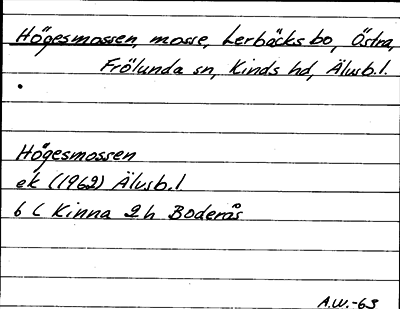 Högesmossen, mosse, Lerbäcks bo, Östra,
Frölunda sn, Kinds hd, Älvsb.l.
Högesmossen
ek (1962) Älvsb.l
6 C Kinna 2 h Boderås
A.W.-63